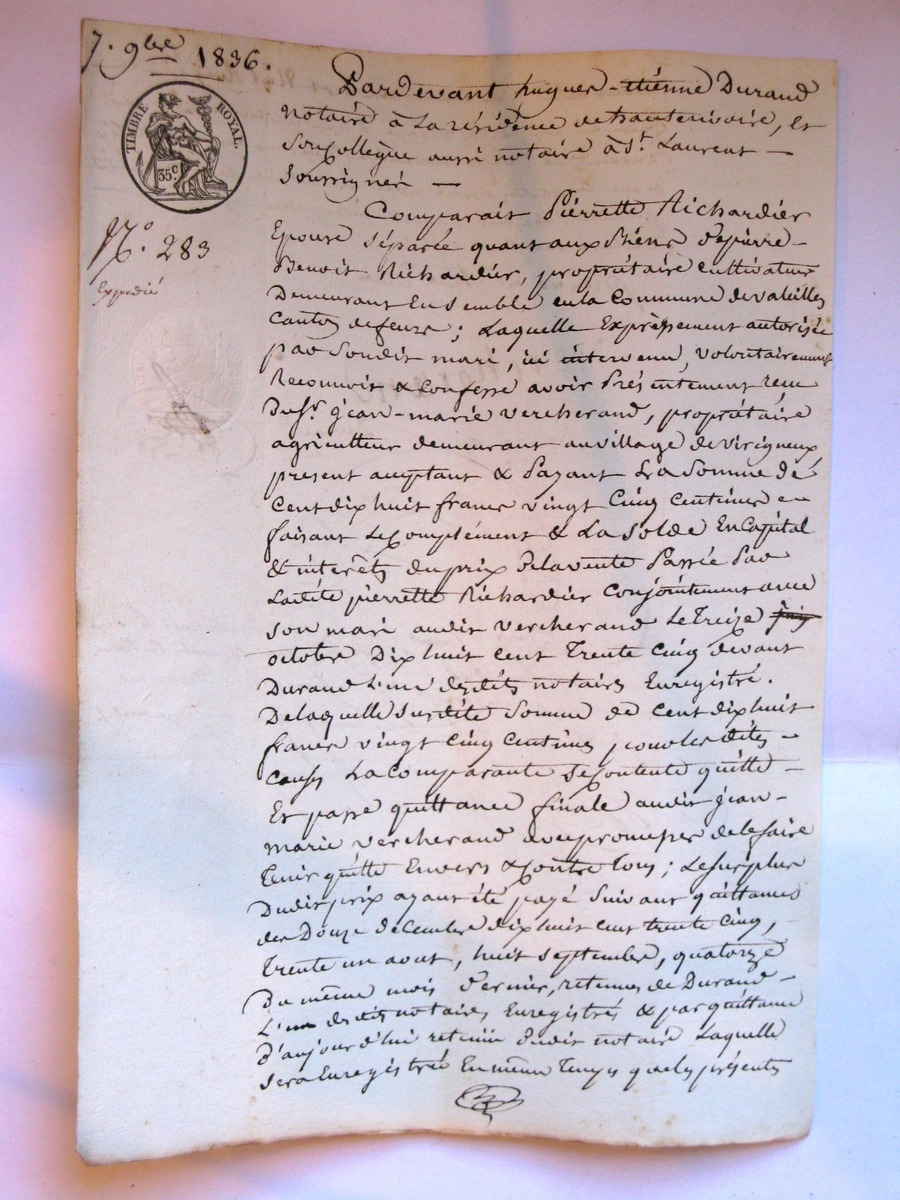 7. 9bre 1836.
TIMBRE ROYAL.
35c.
N.º 283
Expedié
Pardevant hugues-étienne Durand
notaire à La résidence de hauterivoire, et
son Collègue aussi notaire à St. Laurent —
Soussignés —
Comparait Pierrette Richardier
Epouse séparée quant aux Biens de pierre-
Benoit Richardier, propriétaire cultivateur
Demeurant Ensemble en la Commune de valeilles
Canton de feurs ; Laquelle Expressément autorisée
par Soudit mari, ici intervenu, volontairement
Reconnoit & Confesse avoir Présentement reçu
Du Sr. jean-marie vercherand, propriétaire
agriculteur demeurant au village de virigneux,
present acceptant & Payant La Somme de
Cent dix huit francs vingt Cinq Centimes en
faisant Le Complément & La Solde En Capital
& intérêts du prix De la vente Passée Par
Ladite pierrette Richardier Conjointement avec
son mari audit vercherand Le Treize juin
octobre Dix huit cent Trente Cinq devant
Durand L'un desdits notaires Enregistré.
De laquelle Susdite Somme de cent dix huit
francs vingt cinq centimes, pour les dites -
causes La Comparante Se Contente quitte -
Et passe quittance finale audit jean-
marie vercherand avec promesses de le faire
Tenir quitte Envers & Contre Tous ; Le Surplus
Dudit prix ayant été payé Suivant quittances
des Douze décembre dix huit cent trente cinq,
Trente un aout, huit septembre, quatorze
Du même mois dernier, retenues de Durand -
L'un desdits notaires Enregistrés & par quittance
d'aujourd'hui retenue dudit notaire Laquelle
Sera Enregistrée En même Temps que les présentes